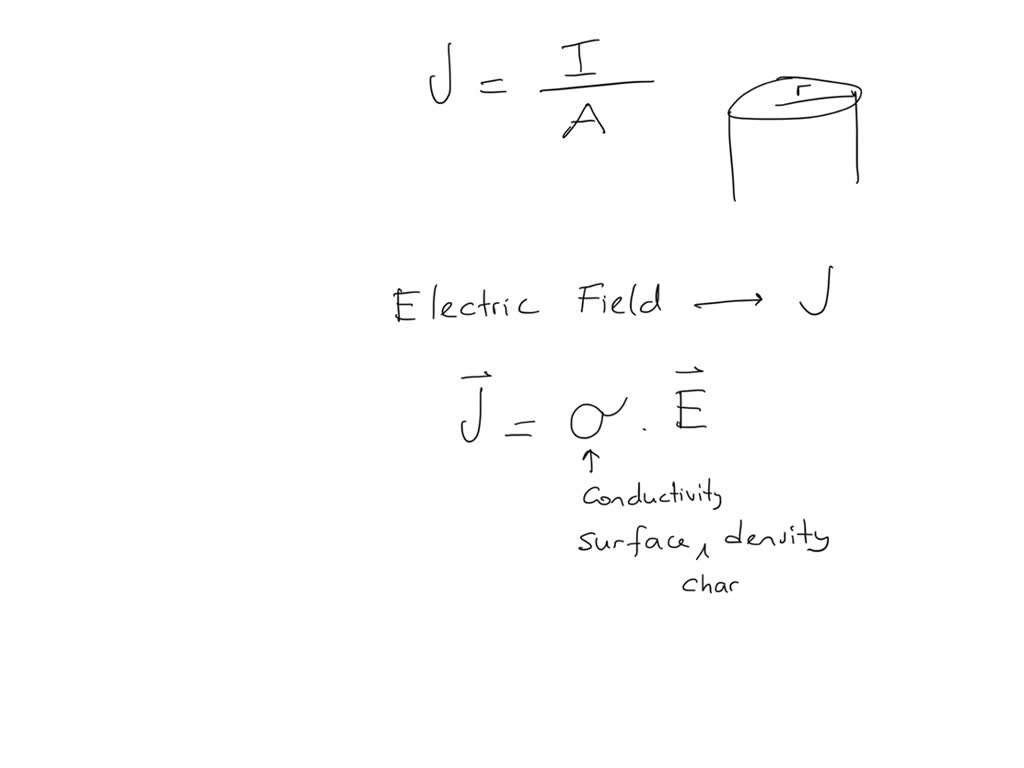 J = I / A
r
Electric Field → J
J⃗ = σ . E⃗
↑
Conductivity
surface, density
char